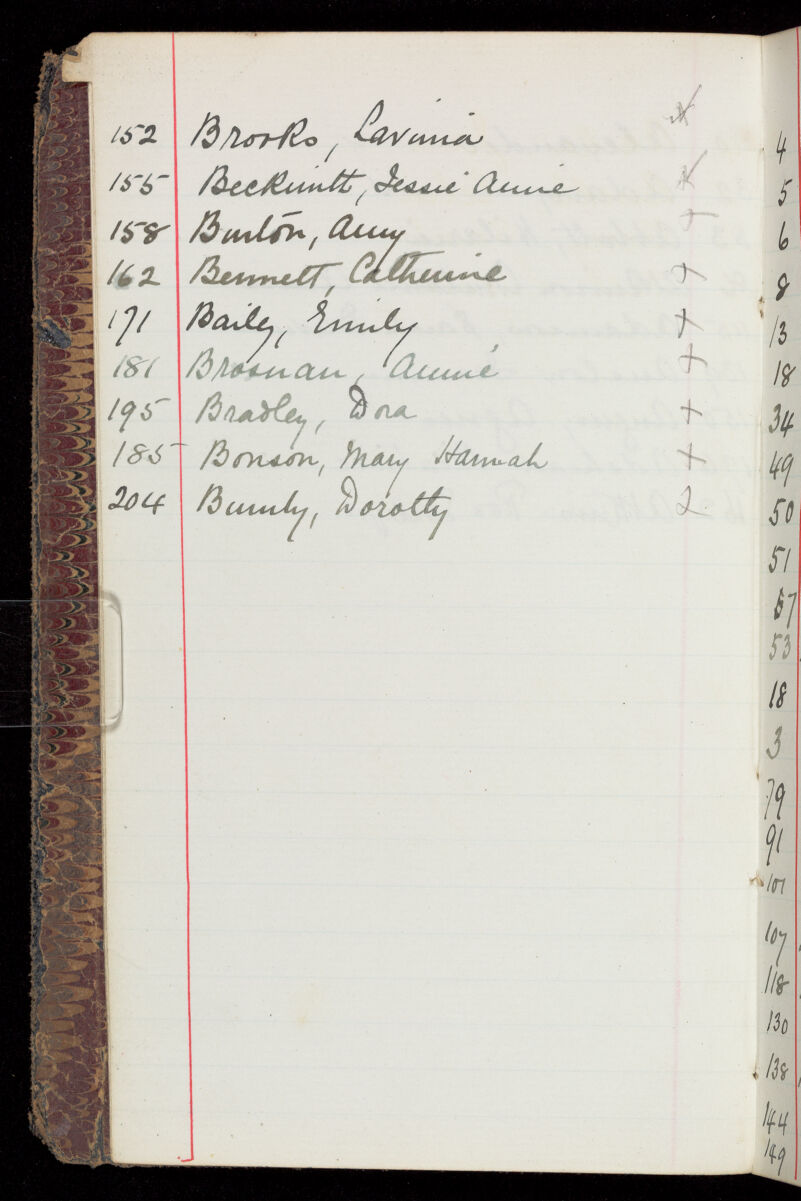 152 Brooks, Lavinia
155 Beckwith, Jessie Annie
158 Burton, Amy +
162 Bennett, Catherine +
171 Bailey, Emily +
181 Brosnan, Annie +
195 Bradley, Dora +
185 Bonson, Mary Hannah +
204 Dorothy 2
4
5
6
8
13
18
34
49
50
51
57
53
18
3
79
91
101
107
118
130
138
144
149